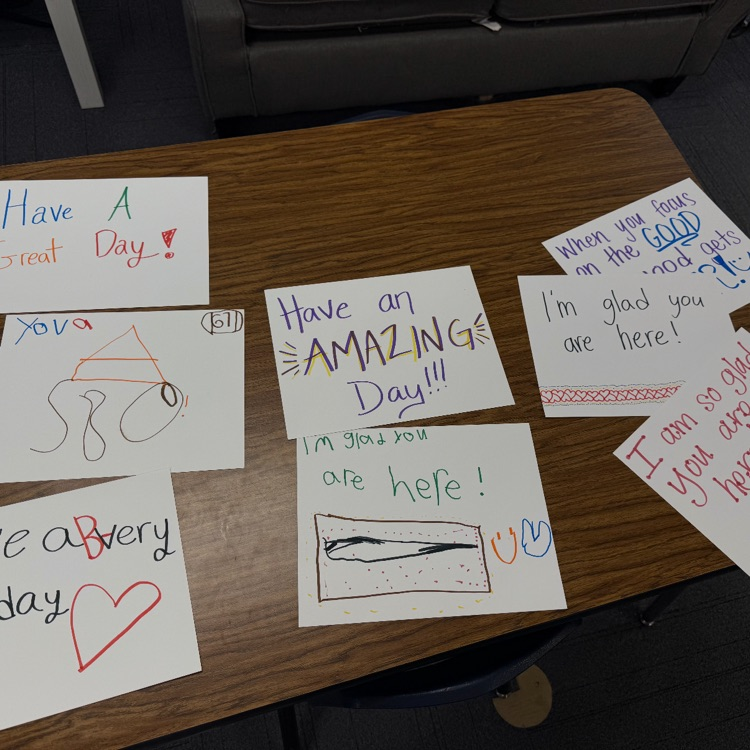 Have A
Great Day!
Yova
61
Have an
AMAZING
Day!!!
When you focus
on the GOOD
good gets
I'm glad you
are here!
I am so glad
you are
here
I'm glad you
are here!
a very
day